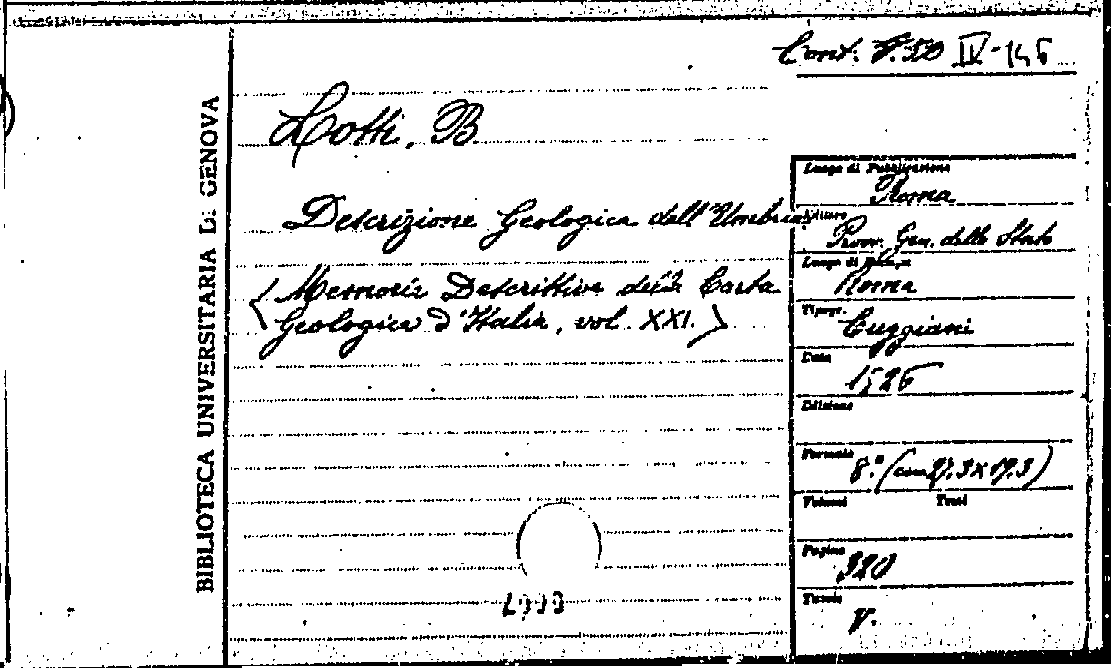 Cont. F.50 IV-146
BIBLIOTECA UNIVERSITARIA DI GENOVA
Lotti, B.
Descrizione Geologica dell'Umbria
(Memorie Descrittive della Carta
Geologica d'Italia, vol. XXI.)
Luogo di Pubblicazione
Roma
Editore
Provv. Gen. dello Stato
Luogo di Stampa
Roma
Tipogr.
Cuggiani
Data
1926
Edizione
Formato
8.° (cm 27,3x19,3)
Volumi Tomi
Pagine
320
Tavole
V.